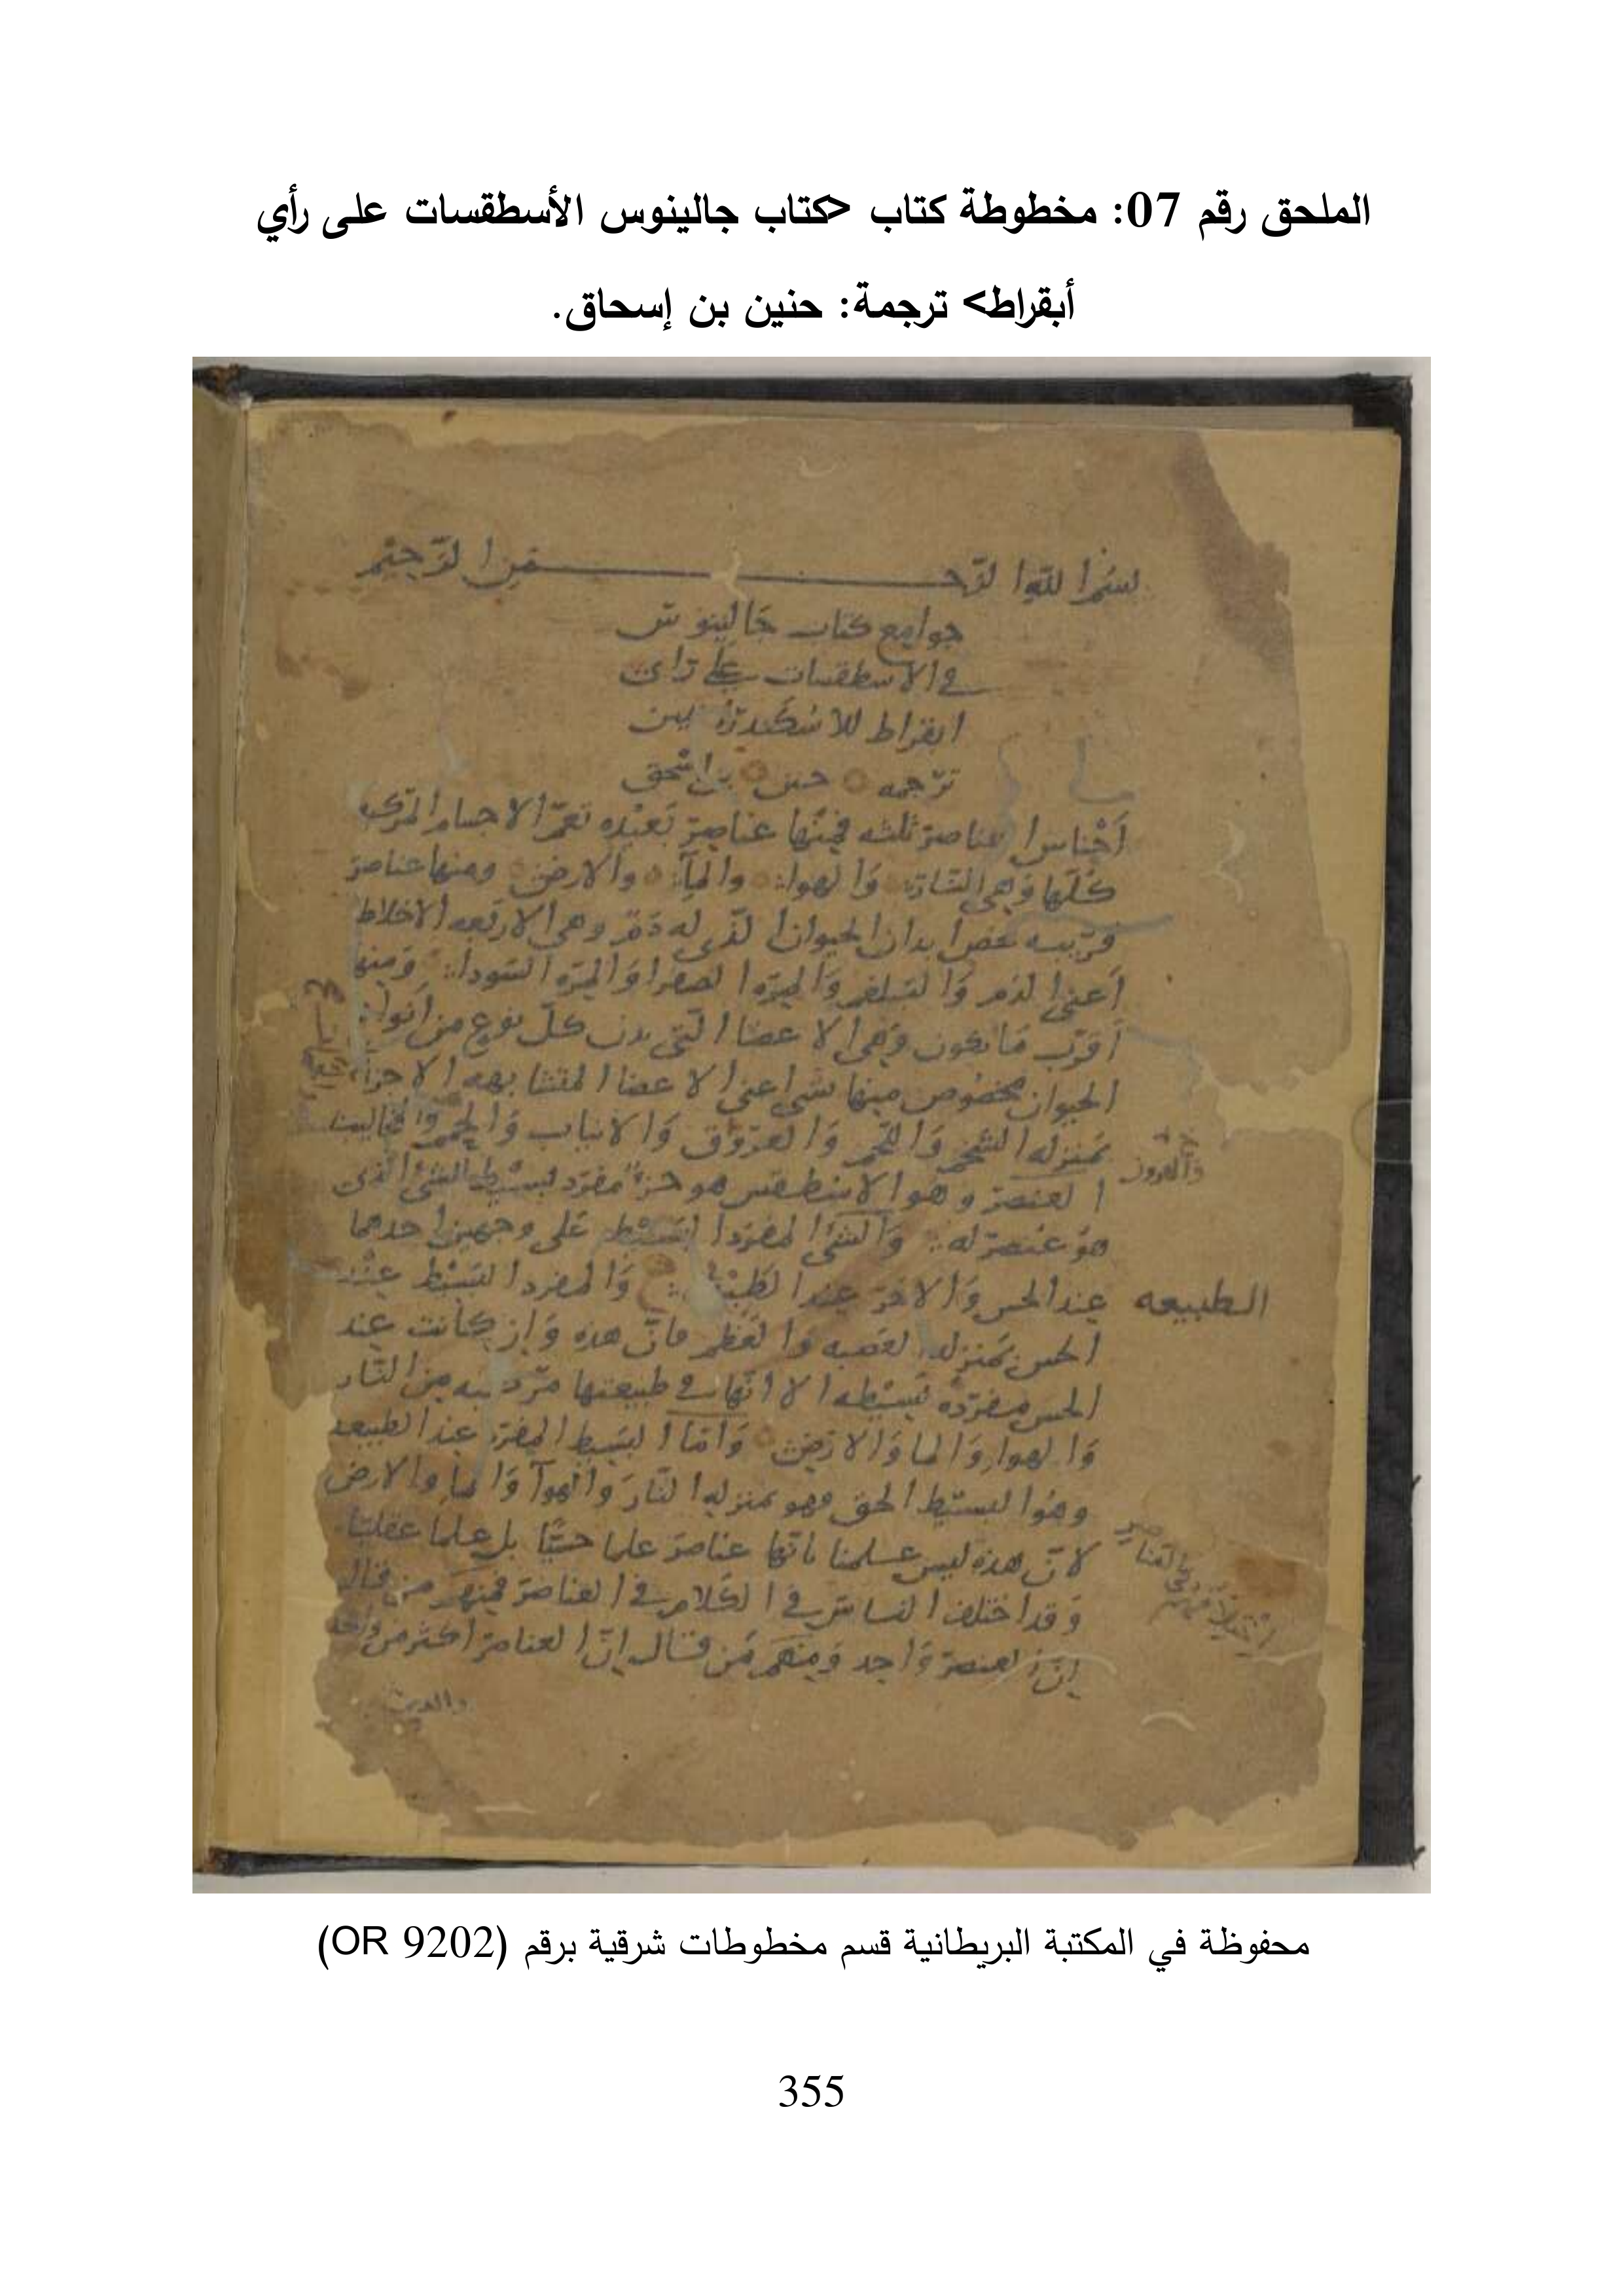 الملحق رقم 07: مخطوطة كتاب <كتاب جالينوس الأسطقسات على رأي
أبقراط> ترجمة: حنين بن إسحاق.
بسم الله الرحمن الرحيم
جوامع كتاب جالينوس
في الاسطقسات على راى
ابقراط للاسكندرانيين
ترجمه حنين بن اسحق
اجناس العناصر ثلثه فمنها عناصر بعيده تعم الاجسام المركبه
كلها وهي النار والهوا والمآ والارض ومنها عناصر
قريبه تخص ابدان الحيوان الذى له دم وهي الاربعه الاخلاط
اعنى الدم والبلغم والمره الصفرا والمره السودا ومنها
اقرب ما يكون وهي الاعضا التى بدن كل نوع من انواع
الحيوان مخصوص منها بشى اعنى الاعضا المتشابهه الاجزآ
بمنزله الشحم واللحم والعروق والانياب والجمر والمخاليب
والقرون
العنصر وهو الاسطقس هو جزء مفرد بسيط للشئ الذى
هو عنصر له والشئ المفرد البسيط على وجهين احدهما
عند الحس والاخر عند الطبيعه والمفرد البسيط عند
الطبيعه
الحس بمنزله العصبه والعظم فان هذه وان كانت عند
الحس مفرده بسيطه الا انها في طبيعتها مركبه من النار
والهوا والما والارض واما البسيط المفرد عند الطبيعه
وهو البسيط الحق فهو بمنزله النار والهوآ والما والارض
لان هذه ليس علمنا بانها عناصر علما حسيا بل علما عقليا
وقد اختلف الناس في الكلام في العناصر فمنهم من قال
ان العنصر واحد ومنهم من قال ان العناصر اكثر من واحد
والدين
محفوظة في المكتبة البريطانية قسم مخطوطات شرقية برقم (OR 9202)
355